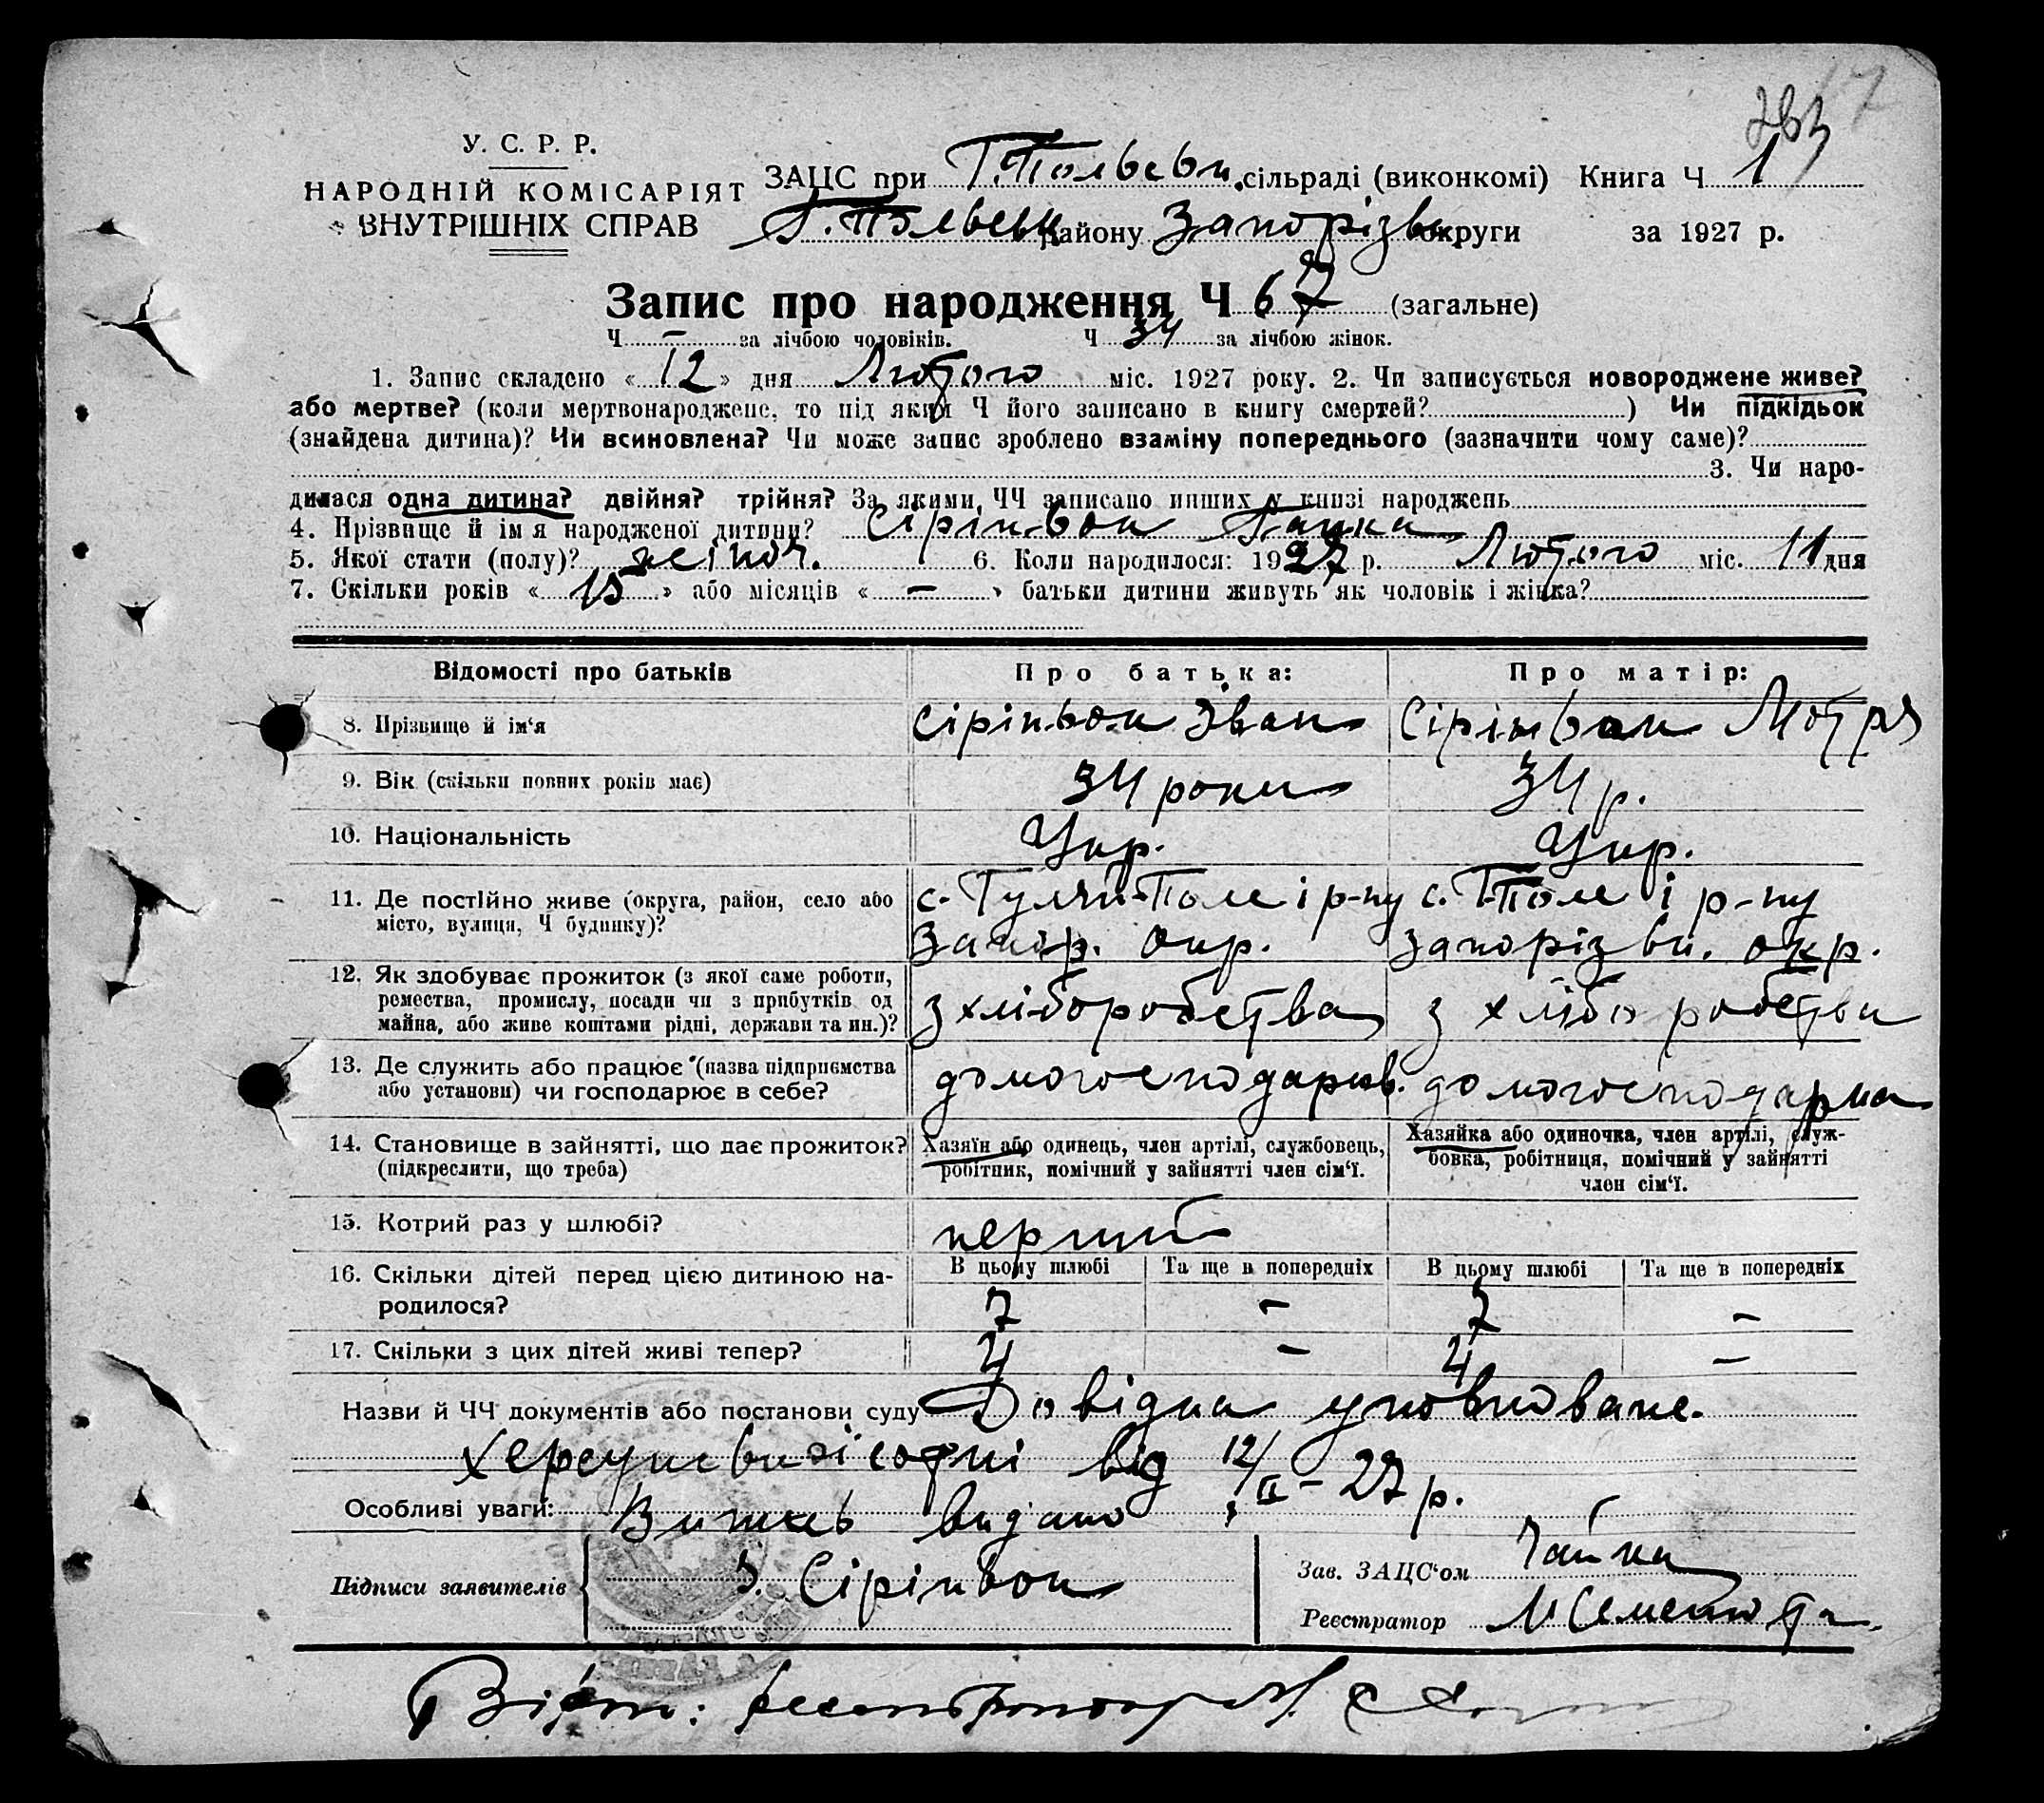 У. С. Р. Р.
НАРОДНІЙ КОМІСАРІЯТ
ВНУТРІШНІХ СПРАВ
ЗАЦС при Г.Польськ. сільраді (виконкомі) Книга Ч 1
Г.Польськ району Запорізьк округи за 1927 р.
Запис про народження Ч 67 (загальне)
Ч — за лічбою чоловіків. Ч 34 за лічбою жінок.
1. Запис складено « 12 » дня Лютого міс. 1927 року. 2. Чи записується новороджене живе?
або мертве? (коли мертвонароджене, то під яким Ч його записано в книгу смертей? ) Чи підкідьок
(знайдена дитина)? Чи всиновлена? Чи може запис зроблено взаміну попереднього (зазначити чому саме)?
3. Чи наро-
дилася одна дитина? двійня? трійня? За якими ЧЧ записано инших у книзі народжень
4. Прізвище й імя народженої дитини? Сіріньок Ганка
5. Якої стати (полу)? жіноч. 6. Коли народилося: 1927 р. Лютого міс. 11 дня
7. Скільки років « 15 » або місяців « — » батьки дитини живуть як чоловік і жінка?
Відомості про батьків Про батька: Про матір:
8. Прізвище й ім'я Сіріньок Іван Сіріньок Мотря
9. Вік (скільки повних років має) 34 роки 34 р.
10. Національність Укр. Укр.
11. Де постійно живе (округа, район, село або
місто, вулиця, Ч будинку)?
с. Гуляй-Поле і р-ну
Запор. окр.
с. Г-Поле і р-ну
Запорізьк. окр.
12. Як здобуває прожиток (з якої саме роботи,
ремества, промислу, посади чи з прибутків од
майна, або живе коштами рідні, держави та ин.)?
з хліборобства
з хліборобства
13. Де служить або працює (назва підприємства
або установи) чи господарює в себе?
домогосподарюв.
домогосподарка
14. Становище в зайнятті, що дає прожиток?
(підкреслити, що треба)
Хазяїн або одинець, член артілі, службовець,
робітник, помічний у зайнятті член сім'ї.
Хазяйка або одиночка, член артілі, служ-
бовка, робітниця, помічний у зайнятті
член сім'ї.
15. Котрий раз у шлюбі? перший
16. Скільки дітей перед цією дитиною на-
родилося?
В цьому шлюбі Та ще в попередніх В цьому шлюбі Та ще в попередніх
7 — 7 —
17. Скільки з цих дітей живі тепер? 4 — 4 —
Назви й ЧЧ документів або постанови суду Довідка уповноваже.
Херсунської сотні від 12/II-27 р.
Особливі уваги: Витяг видано
Підписи заявителів І. Сіріньок
Зав. ЗАЦС'ом Чайка
Реєстратор
Вірно: